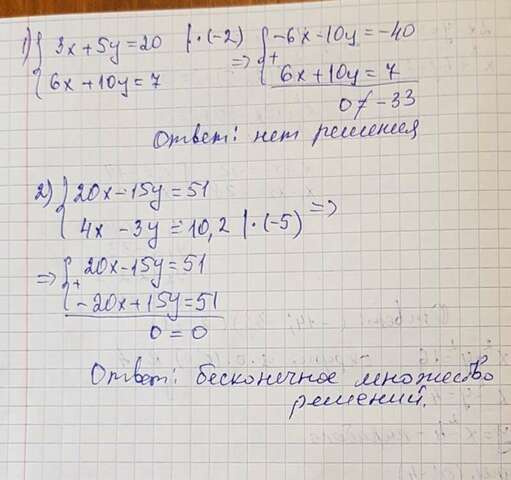 1) { 3x+5y=20 |·(-2) { -6x-10y=-40
{ 6x+10y=7 => + 6x+10y=7
0≠-33
Ответ: нет решения
2) { 20x-15y=51
{ 4x-3y=10,2 |·(-5) =>
=> { 20x-15y=51
+ -20x+15y=51
0=0
Ответ: бесконечное множество
решений.